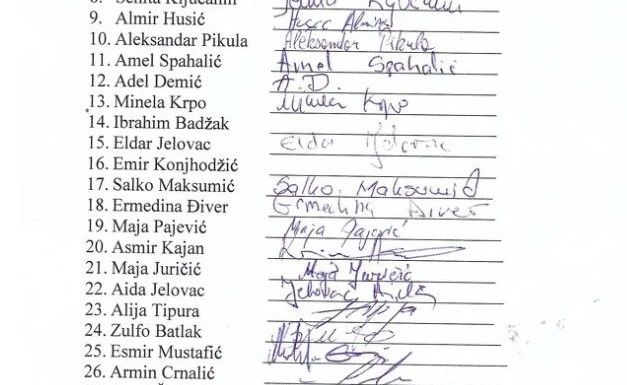 8. Senita Ključanin
9. Almir Husić Husić Almir
10. Aleksandar Pikula Aleksandar Pikula
11. Amel Spahalić Amel Spahalić
12. Adel Demić A.D.
13. Minela Krpo Minela Krpo
14. Ibrahim Badžak
15. Eldar Jelovac Eldar Jelovac
16. Emir Konjhodžić
17. Salko Maksumić Salko Maksumić
18. Ermedina Điver Ermedina Điver
19. Maja Pajević Maja Pajević
20. Asmir Kajan
21. Maja Juričić Maja Juričić
22. Aida Jelovac Jelovac Aida
23. Alija Tipura
24. Zulfo Batlak
25. Esmir Mustafić
26. Armin Crnalić